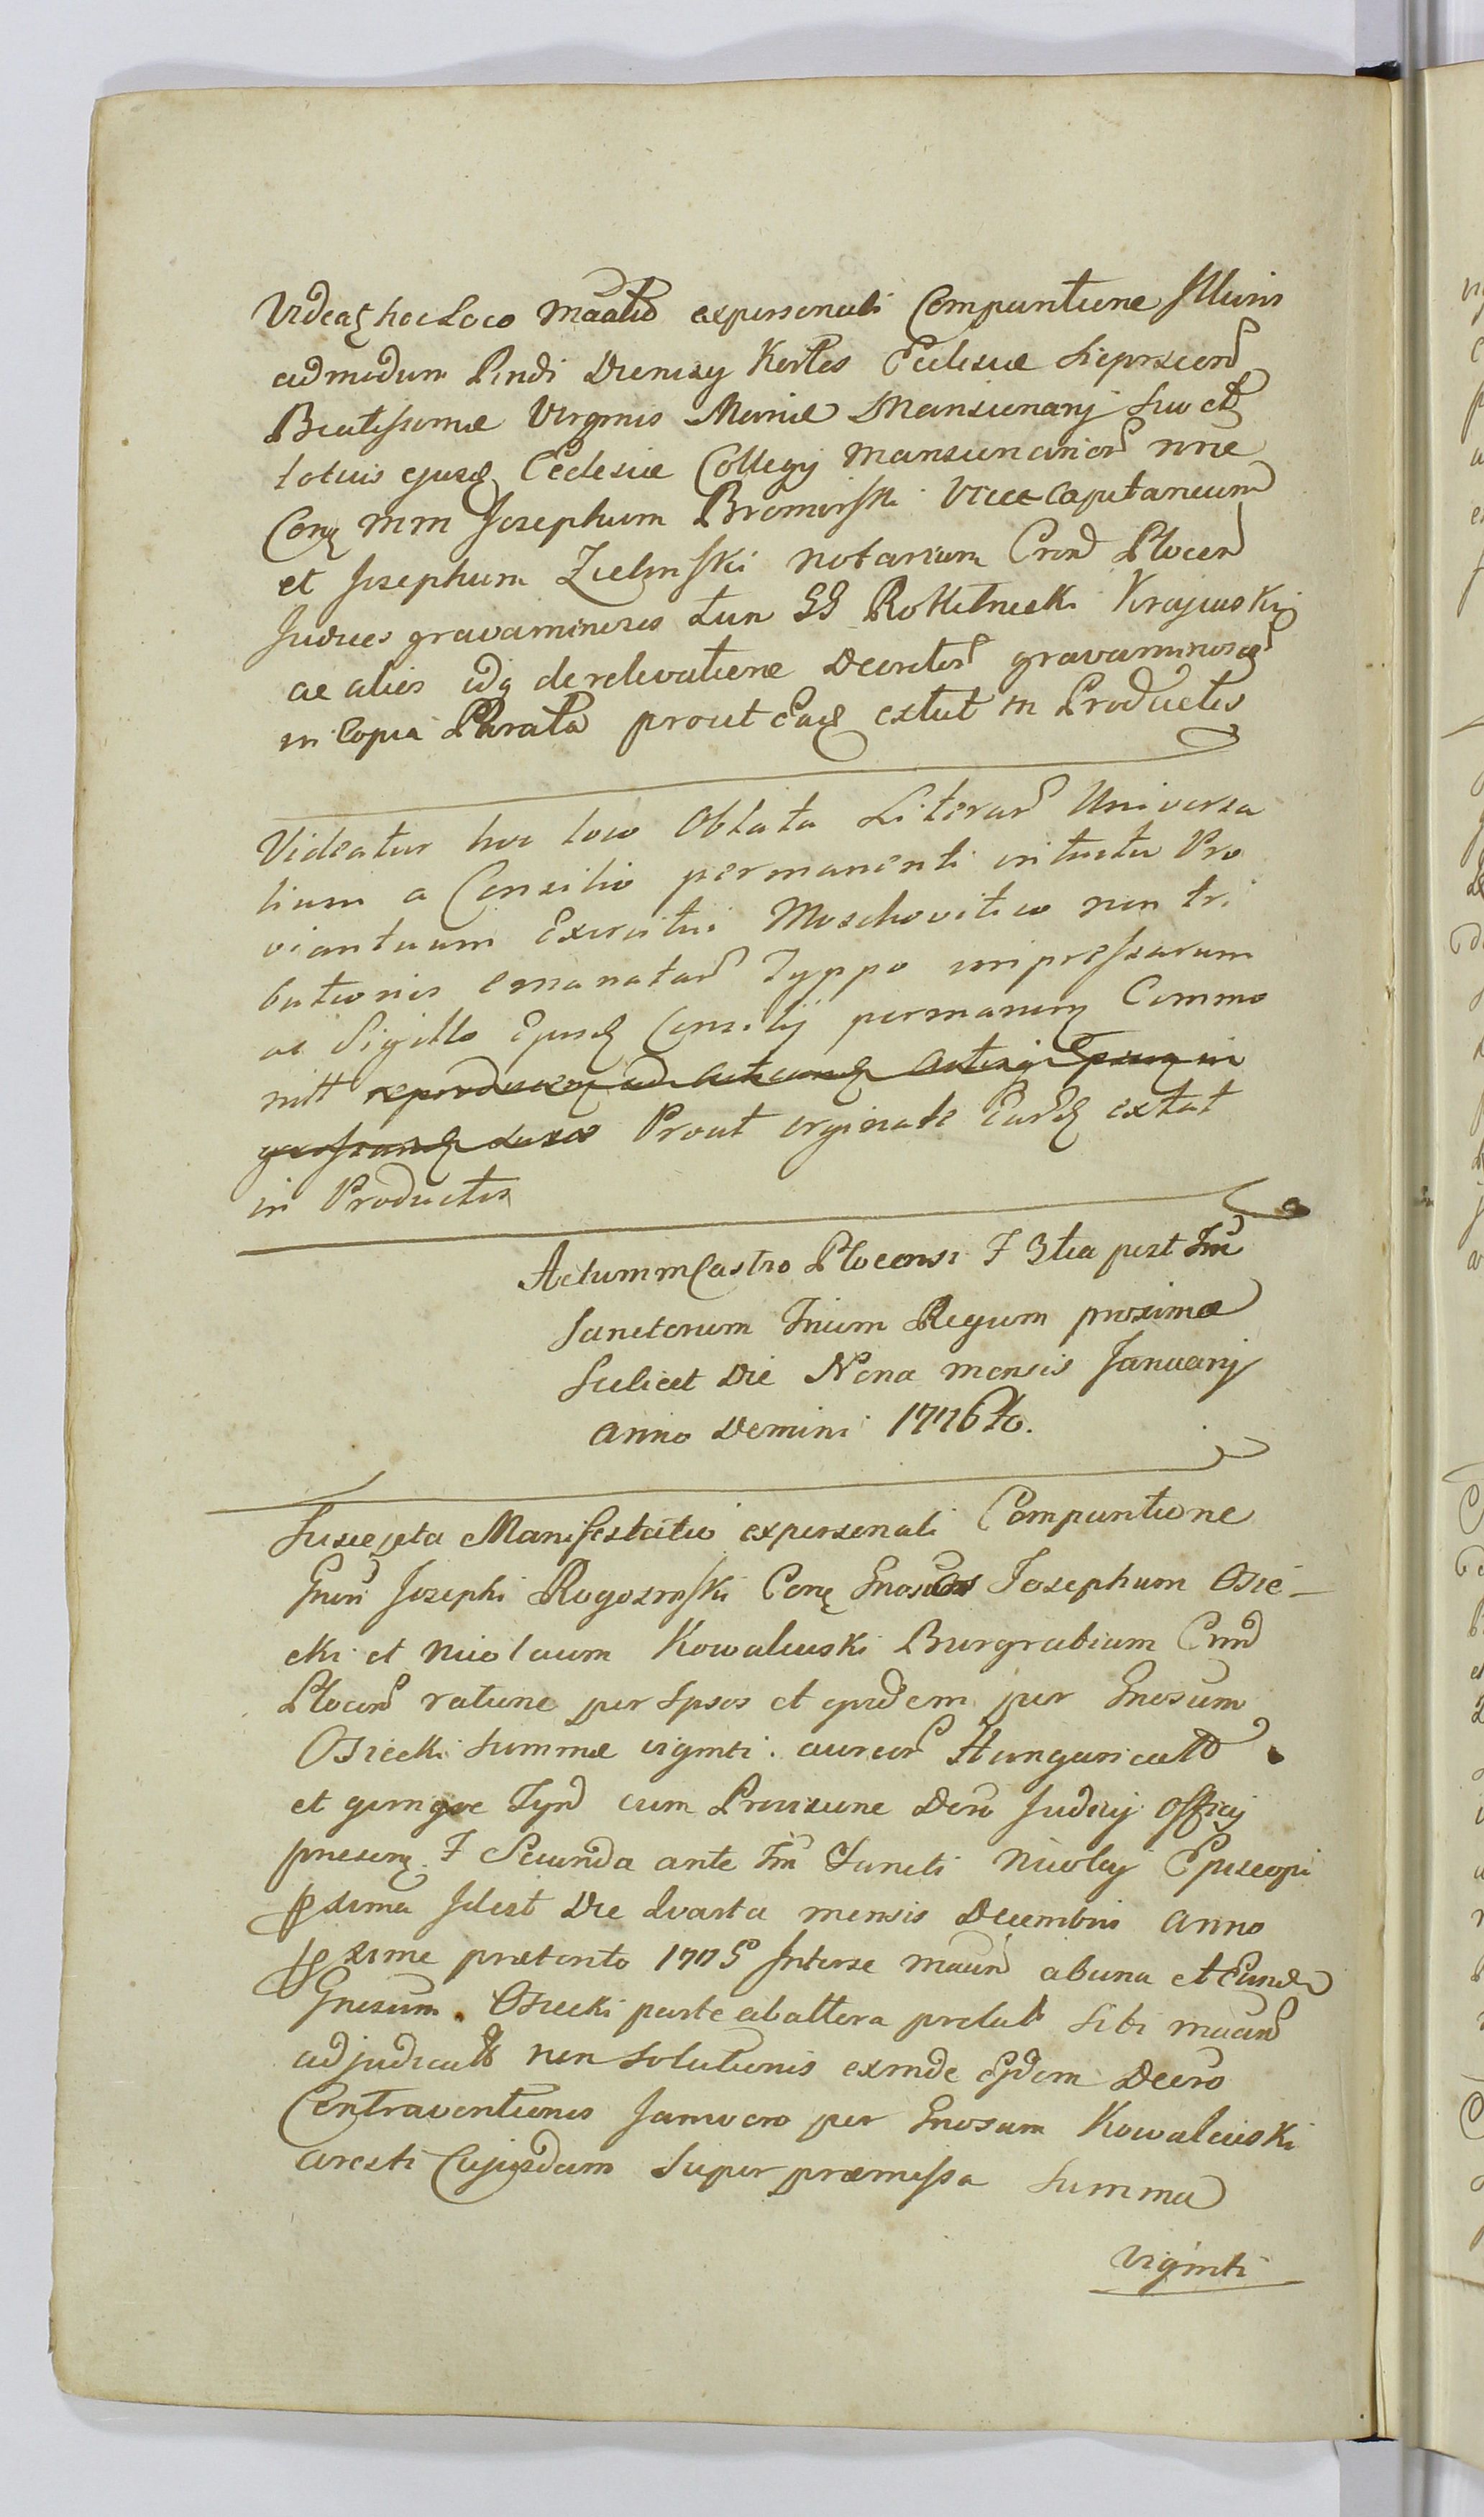 Videat hoc Loco Maãtio expersonali Compartione Illuris
admodum Rndi Dionisy Kertes Ecclesiæ Sieprscien
Beatissimæ Virginis Mariæ Mansionarij Suo et
totius ejusq Ecclesiæ Collegij Mansionarior nõie
Con MM Josephum Bromirski Vice Capitaneum
et Josephum Zielinski Notarium Cren Plocen
Judices gravaminosos tun GG Rokitnicki Krajewski
ac alios idq de relevatione Decretor gravaminosor
in Copia Parata prout Ead extat in Productis
Videatur hoc loco Oblata Literar Universa
lium a Consilio permanenti intuitu Pro
viantuum Exercitui Moschovitico non tri
butionis emanatar Typpo impressarum
ac Sigillo Ejusd Consilij permanen Commu
nitt Prout orginale Eard extat
in Productis
Actum in Castro Plocensi F 3tia post Fm
Sanctorum Trium Regum proxima
Scilicet Die Nona mensis Januarij
Anno Domini 1776to.
Suscepta Manifestatio expersonali Compartione
Gnosi Josephi Rogozinski Con Gnosos Josephum Osie-
cki et Nicolaum Kowalewski Burgrabium Cren
Plocen ratione per Ipsos et quidem per Gnosum
Osiecki Summæ viginti aureor Hungaricall
et quinque Tynf cum Provisione Decro Judicij Officij
præsen F Secunda ante Fm Sancti Nicolaj Episcopi
pxima Idest Die Quarta mensis Decembris Anno
pxime præterito 1775o Interse Maan abuna et Eund
Gnosum Osiecki parte ab altera prolat Sibi Maan
adjudicatt non Solutionis exinde Eidem Decro
Contraventionis Jamvero per Gnosum Kowalewski
aresti Cujusdam Super præmissa Summa
Viginti